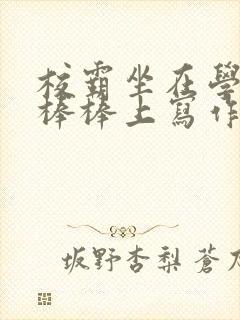 校霸坐在學
棒棒上寫作
坂野杏梨 蒼